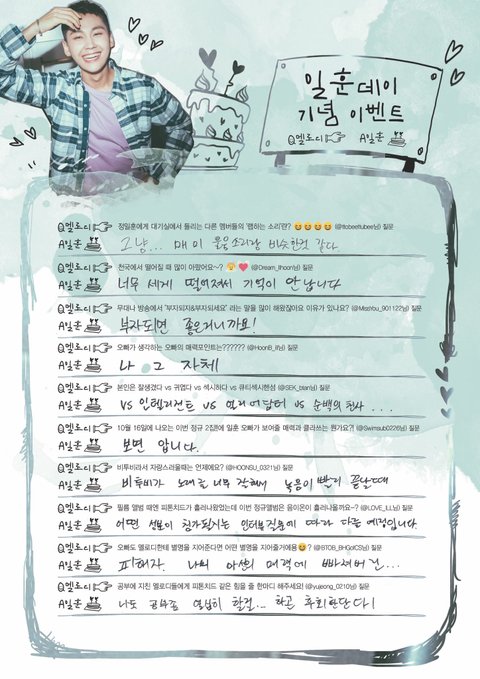 일훈데이
기념 이벤트
Q멜로디 A일훈
Q멜로디 정일훈에게 대기실에서 들리는 다른 멤버들의 '랩하는 소리'란? 😆😆😆😆 (@ttobeettubee)님 질문
A일훈 그냥... 매미 울음소리랑 비슷한것 같다
Q멜로디 천국에서 떨어질 때 많이 아팠어요~? (@Dream_Ilhoon)님 질문
A일훈 너무 세게 떨어져서 기억이 안납니다
Q멜로디 무대나 방송에서 '부자되지&부자되세요' 라는 말을 많이 해왔잖아요 이유가 있나요? (@MissYou_901122)님 질문
A일훈 부자되면 좋으니까요!
Q멜로디 오빠가 생각하는 오빠의 매력포인트는?????? (@HoonB_lf)님 질문
A일훈 나 그 자체
Q멜로디 본인은 잘생겼다 vs 귀엽다 vs 섹시하다 vs 큐티섹시헨섬 (@SEK_blan)님 질문
A일훈 VS 인텔리전트 VS 얼리어답터 VS 순백의 천사 ...
Q멜로디 10월 16일에 나오는 이번 정규 2집에 일훈 오빠가 보여줄 매력과 클라쓰는 뭔가요?! (@Swimsub0226)님 질문
A일훈 보면 압니다.
Q멜로디 비투비라서 자랑스러울때는 언제에요? (@HOONSU_0321)님 질문
A일훈 비투비가 노래를 너무 잘해서 녹음이 빨리 끝날때
Q멜로디 필름 앨범 때엔 피톤치드가 흘러나왔었는데 이번 정규앨범은 음이온이 흘러나올까요~? (@LOVE_ILL)님 질문
A일훈 어떤 성분이 첨가될지는 인터뷰질문에 따라 다를 예정입니다
Q멜로디 오빠도 멜로디한테 별명을 지어준다면 어떤 별명을 지어줄거에용😆? (@BTOB_BHGotCS)님 질문
A일훈 피해자. 나의 마성의 매력에 빠져버린...
Q멜로디 공부에 지친 멜로디들에게 피톤치드 같은 힘을 줄 한마디 해주세요! (@yujeong_0210)님 질문
A일훈 나도 공부좀 열심히 할걸... 하고 후회한단다!